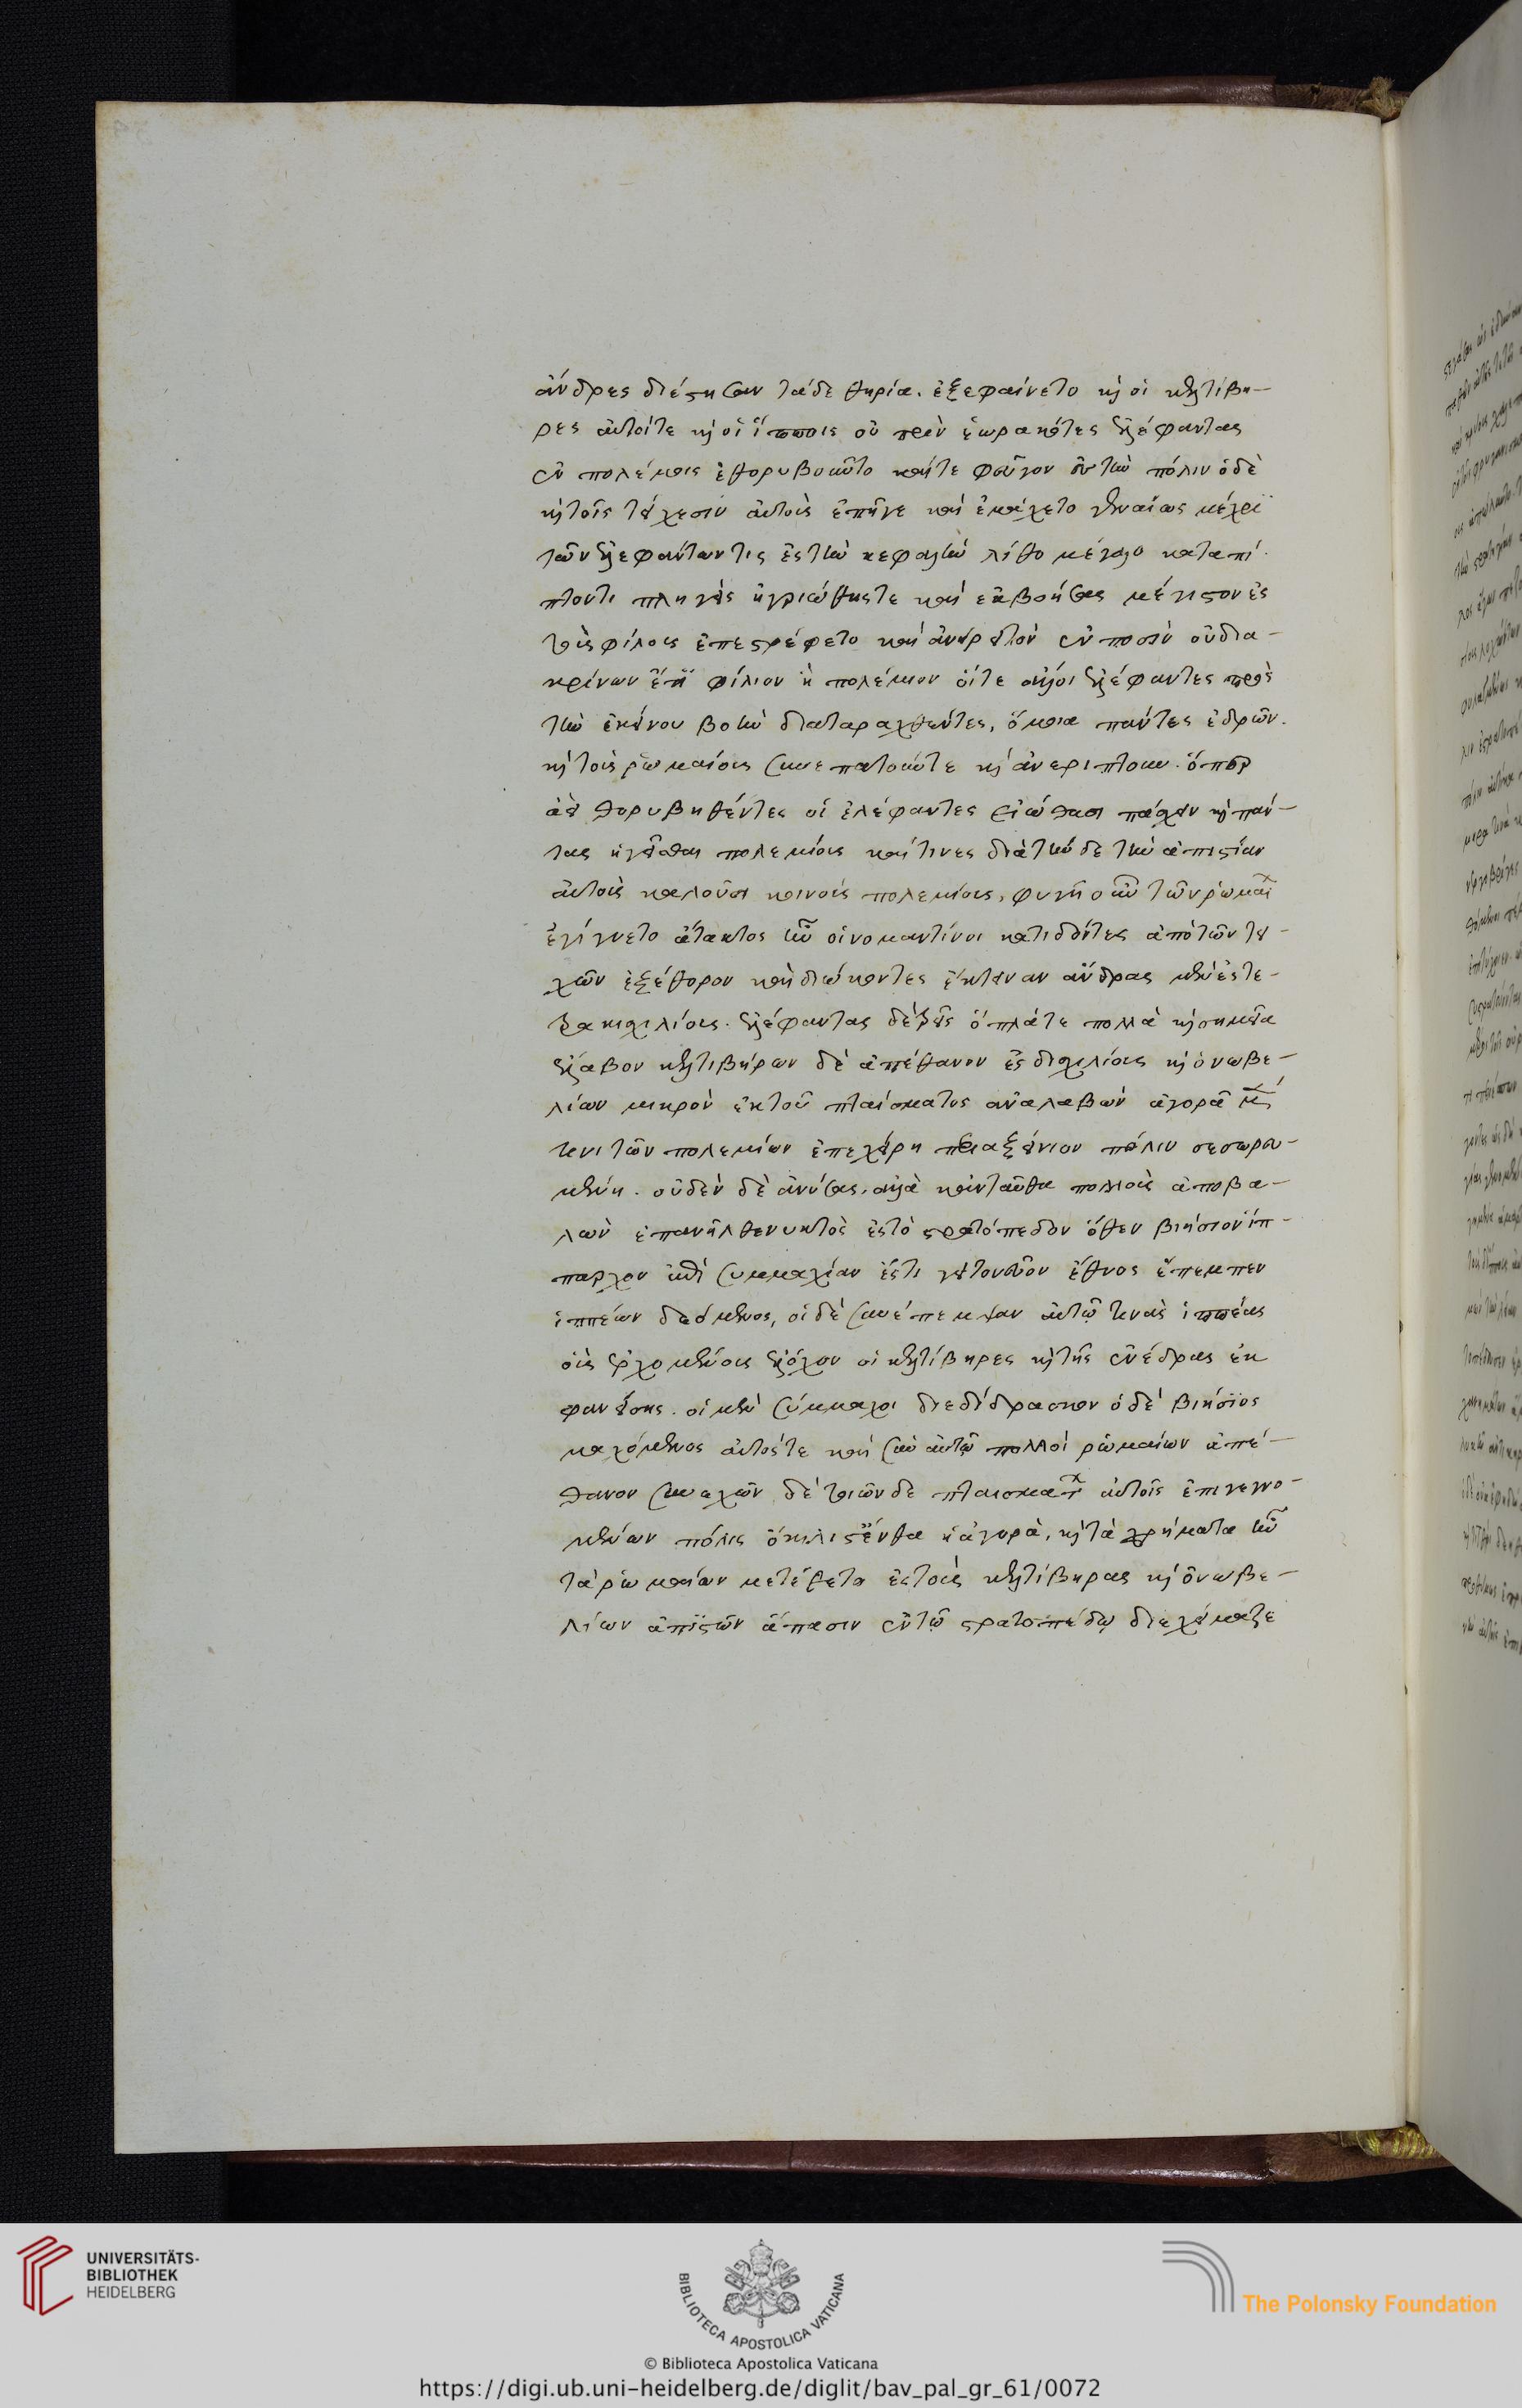 ἄνδρες διέστησαν τάδε θηρία. ἐξεφαίνετο κὶ οἱ κελτίβη-
ρες αὐτοίτε κὶ οἱ ἵπποις οὐ πρὶν ἑωρακότες ἐλέφαντας
ἐν πολέμοις ἐθορυβοῦντο καίτε φεῦγον ἐς τὴν πόλιν ὁδὲ
κὶ τοῖς τείχεσιν αὐτοὺς ἐπῆγε καὶ ἐμάχετο γενναίως μέχρι
τῶν ἐλεφάντων τις ἐς τὴν κεφαλὴν λίθο μέγαλο καταπί-
πτοντι πληγεὶς ἠγριώθηστε καὶ ἐκβοήσας μέγιστον ἐς
τοὺς φίλους ἐπεστρέφετο καὶ ἀνῄρει τὸν ἐν ποσὶν οὐδια-
κρίνων ἔτι φίλιον ἢ πολέμιον οἵτε ἄλλοι ἐλέφαντες πρὸς
τὴν ἐκείνου βοὴν διαταραχθέντες, ὅμοια πάντες ἔδρων.
κὶ τοὺς ῥωμαίους συνεπατοῦντε κὶ ἀνερίπτουν. ὅπερ
ἀεὶ θορυβηθέντες οἱ ἐλέφαντες εἰώθασι πάσχειν κὶ πάν-
τας ἡγεῖσθαι πολεμίους καίτινες διὰ τήνδε τὴν ἀπιστίαν
αὐτοὺς καλοῦσι κοινοὺς πολεμίους, φυγὴ οὖν τῶν ῥωμαί
ἐγίγνετο ἄτακτος ἣν οἱ νομαντίνοι κατιδόντες ἀπὸ τῶν τει-
χῶν ἐξέθορον καὶ διώκοντες ἔκτειναν ἄνδρας μὲν ἐς τε-
τρακισχιλίους. ἐλέφαντας δὲ τρεῖς ὅπλάτε πολλὰ κὶ σημεῖα
ἔλαβον κελτιβήρων δὲ ἀπέθανον ἐς δισχιλίους κὶ ὁ νωβε-
λίων μικρὸν ἐκ τοῦ πταίσματος ἀναλαβὼν ἀγορᾷ μέν
τινι τῶν πολεμίων ἐπεχείρη περιαξείνιον πόλιν σεσωρευ-
μένῃ. οὐδὲν δὲ ἀνύσας, ἀλλὰ κἀνταῦθα πολλοὺς ἀποβα-
λὼν ἐπανῆλθεν νυκτὸς ἐς τὸ στρατόπεδον ὅθεν βιήσιον ἵπ-
παρχον ἐπὶ συμμαχίαν ἔς τι γειτονεῦον ἔθνος ἔπεμπεν
ἱππέων δεόμενος, οἱ δὲ συνέπεμψαν αὐτῷ τινὰς ἱππέας
οὓς ἐρχομένους ἐλόχων οἱ κελτίβηρες κὶ τῆς ἐνέδρας ἐκ
φανείσης. οἱ μὲν σύμμαχοι διεδίδρασκον ὁ δὲ βιήσιος
μαχόμενος αὐτόςτε καὶ σὺν αὐτῷ πολλοὶ ῥωμαίων ἀπέ-
θανον συνεχῶν δὲ τοιῶνδε πταισμάτ αὐτοῖς ἐπιγιγνο-
μένων πόλις ὄκιλις ἔνθα ἡ ἀγορὰ, κὶ τὰ χρήματα ἦν
τὰ ῥωμαίων μετέθετο ἐς τοὺς κελτίβηρας κὶ ὁ νωβε-
λίων ἀπιστῶν ἅπασιν ἐν τῷ στρατοπέδῳ διεχείμαζε
UNIVERSITÄTS-
BIBLIOTHEK
HEIDELBERG
BIBLIOTECA APOSTOLICA VATICANA
The Polonsky Foundation
© Biblioteca Apostolica Vaticana
https://digi.ub.uni-heidelberg.de/diglit/bav_pal_gr_61/0072